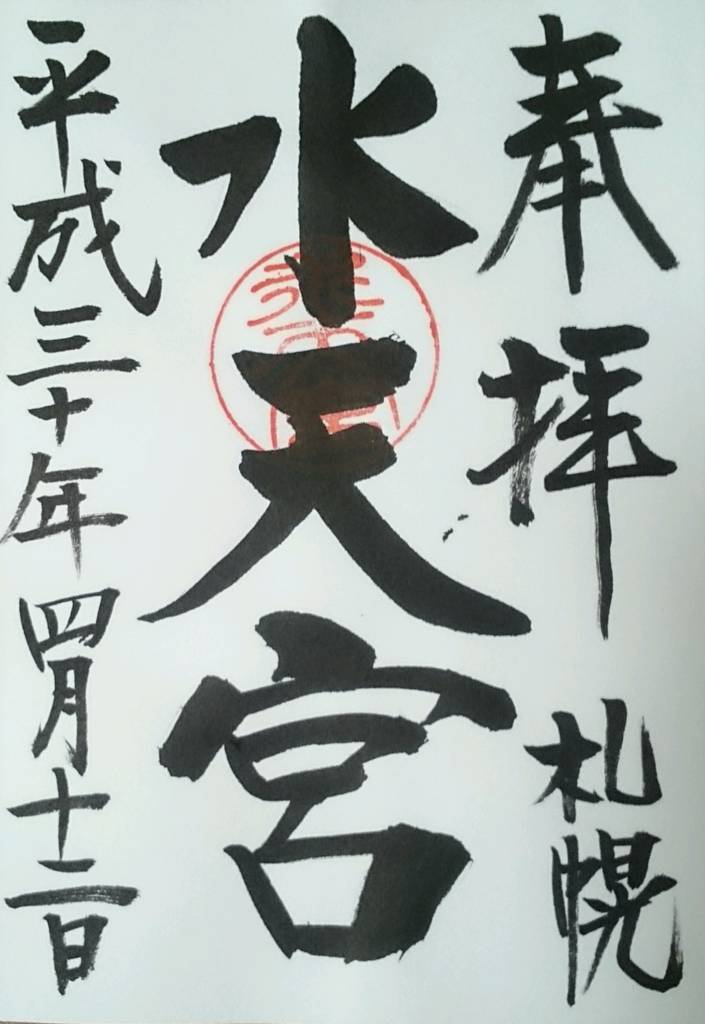 奉拝 札幌
水天宮
平成三十年四月十二日